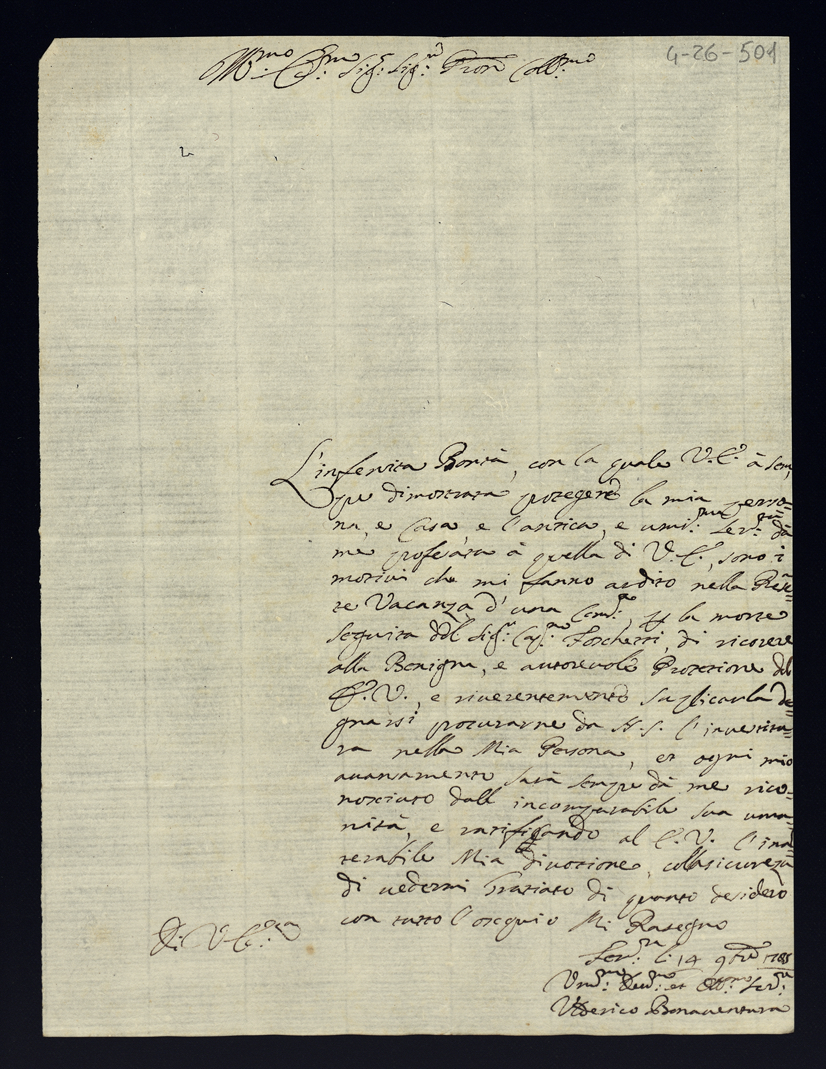 4-26-501
Ill:mo Ecc:mo Sig:r Sig:r Pron Coll:mo
L'infenita Bontà, con la quale V.E. à sem,
pre dimostrata potegere la mia perso=
na, e Casa, e l'antica, e umi:ma Ser:tù dà
me profesata à quella di V.E., sono i
motivi che mi fanno ardito nella
te Vacanza d'una per la morte
seguita ddl Sig:r Cap:no Forchetti, di ricorere
alla Benigna, e autorevole Protetione del
E.V., e riverentemente suplicarla de=
gnarsi procurarne da S.S. l'investitu=
ra nella Mia Persona, et ogni mio
avansamento sarà sempre dà me rico=
nosciuto dall incomparabile sua uma=
nità, e ratificando al E.V. l'inal
terabile Mia divotione, collasicureza
di vedermi Gratiato di quanto desidero
con tutto l'osequio Mi Rasegno
Di V.E:za
li 14 9bre
Um:mo Deu:mo et Obb:mo Ser:re
Uderico Bonaventura